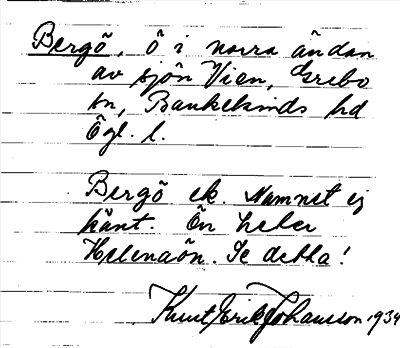 Bergö, ö i norra ändan
av sjön Vien, Grebo
sn, Bankekinds hd
Ögl. l.
Bergö ek. Namnet ej
känt. Ön heter
Helenaön. Se detta!
Knut Erik Johansson 1934